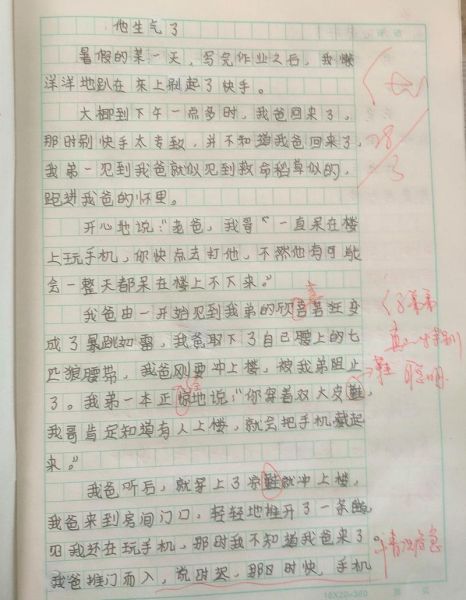 他生气了
暑假的某一天，写完作业之后，我懒
洋洋地趴在床上刷起了快手。
大概到下午一点多时，我爸回来了，
那时刷快手太专致，并不知道我爸回来了，
我弟一见到我爸就似见到救命稻草似的，
跑进我爸的怀里。
开心地说："老爸，我哥"一直呆在楼
上玩手机，你快点去打他，不然他有可能
会一整天都呆在楼上不下来。"
我爸由一开始见到我弟的欣喜若狂变
成了暴跳如雷，我爸取下了自己腰上的七
匹狼腰带，我爸刚要冲上楼，被我弟阻止
了。我弟一本正惊地说："你穿着双大皮鞋，
我哥肯定知道有人上楼，就会把手机藏起
来。"
我爸听后，就穿上了凉鞋就冲上楼，
我爸来到房间门口，轻轻地推开了一条缝，
见我还在玩手机，那时我不知道我爸来了
我爸推门而入，说时迟，那时快，手机
喜
经
鞋
28
3
弟弟
真
聪明
情况危急
18X20=360